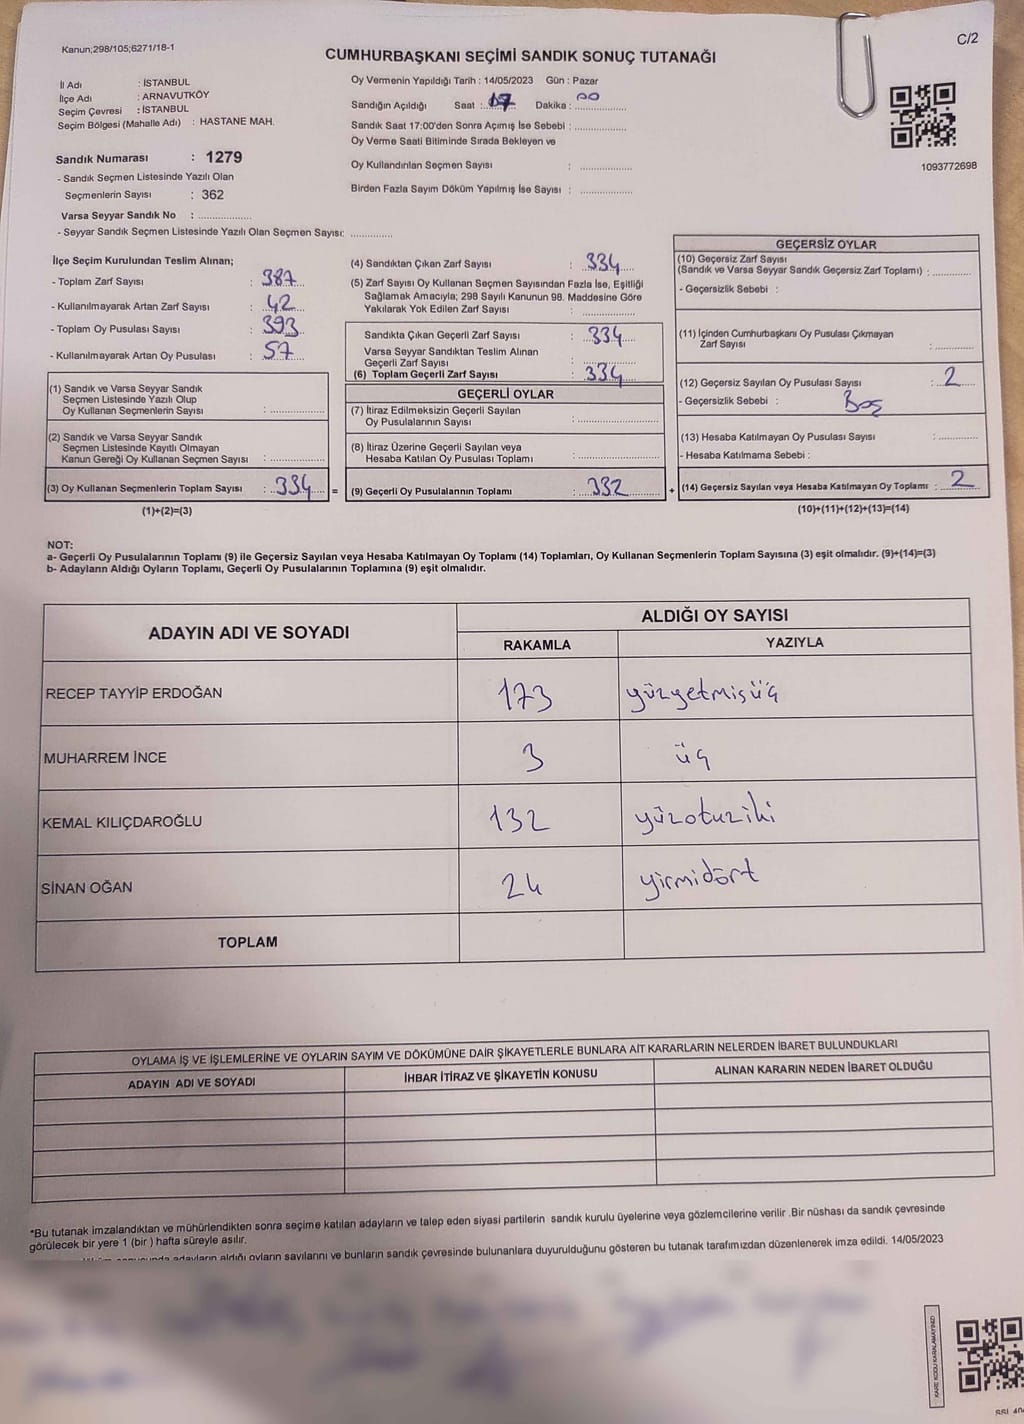 Kanun;298/105;6271/18-1
C/2
CUMHURBAŞKANI SEÇİMİ SANDIK SONUÇ TUTANAĞI
İl Adı : İSTANBUL
İlçe Adı : ARNAVUTKÖY
Seçim Çevresi : İSTANBUL
Seçim Bölgesi (Mahalle Adı) : HASTANE MAH.
Oy Vermenin Yapıldığı Tarih : 14/05/2023 Gün : Pazar
Sandığın Açıldığı Saat :..17 Dakika : 00
Sandık Saat 17:00'den Sonra Açımış İse Sebebi : ..............
Oy Verme Saati Bitiminde Sırada Bekleyen ve
Oy Kullandırılan Seçmen Sayısı : ..............
Birden Fazla Sayım Döküm Yapılmış İse Sayısı : ..............
1093772698
Sandık Numarası : 1279
- Sandık Seçmen Listesinde Yazılı Olan
Seçmenlerin Sayısı : 362
Varsa Seyyar Sandık No : ..............
- Seyyar Sandık Seçmen Listesinde Yazılı Olan Seçmen Sayısı: ...........
İlçe Seçim Kurulundan Teslim Alınan;
- Toplam Zarf Sayısı : 387
- Kullanılmayarak Artan Zarf Sayısı : 42
- Toplam Oy Pusulası Sayısı : 393
- Kullanılmayarak Artan Oy Pusulası : 57
(1) Sandık ve Varsa Seyyar Sandık
Seçmen Listesinde Yazılı Olup
Oy Kullanan Seçmenlerin Sayısı : ..............
(2) Sandık ve Varsa Seyyar Sandık
Seçmen Listesinde Kayıtlı Olmayan
Kanun Gereği Oy Kullanan Seçmen Sayısı : ..............
(3) Oy Kullanan Seçmenlerin Toplam Sayısı : 334 =
(1)+(2)=(3)
(4) Sandıktan Çıkan Zarf Sayısı : 334
(5) Zarf Sayısı Oy Kullanan Seçmen Sayısından Fazla İse, Eşitliği
Sağlamak Amacıyla; 298 Sayılı Kanunun 98. Maddesine Göre
Yakılarak Yok Edilen Zarf Sayısı : ..............
Sandıkta Çıkan Geçerli Zarf Sayısı : 334
Varsa Seyyar Sandıktan Teslim Alınan
Geçerli Zarf Sayısı : ..............
(6) Toplam Geçerli Zarf Sayısı : 334
GEÇERLİ OYLAR
(7) İtiraz Edilmeksizin Geçerli Sayılan
Oy Pusulalarının Sayısı : ..............
(8) İtiraz Üzerine Geçerli Sayılan veya
Hesaba Katılan Oy Pusulası Toplamı : ..............
(9) Geçerli Oy Pusulalarının Toplamı : 332 +
GEÇERSİZ OYLAR
(10) Geçersiz Zarf Sayısı
(Sandık ve Varsa Seyyar Sandık Geçersiz Zarf Toplamı) : ...........
- Geçersizlik Sebebi :
(11) İçinden Cumhurbaşkanı Oy Pusulası Çıkmayan
Zarf Sayısı : ...........
(12) Geçersiz Sayılan Oy Pusulası Sayısı : 2
- Geçersizlik Sebebi : Boş
(13) Hesaba Katılmayan Oy Pusulası Sayısı : ...........
- Hesaba Katılmama Sebebi :
(14) Geçersiz Sayılan veya Hesaba Katılmayan Oy Toplamı : 2
(10)+(11)+(12)+(13)=(14)
NOT:
a- Geçerli Oy Pusulalarının Toplamı (9) ile Geçersiz Sayılan veya Hesaba Katılmayan Oy Toplamı (14) Toplamları, Oy Kullanan Seçmenlerin Toplam Sayısına (3) eşit olmalıdır. (9)+(14)=(3)
b- Adayların Aldığı Oyların Toplamı, Geçerli Oy Pusulalarının Toplamına (9) eşit olmalıdır.
ADAYIN ADI VE SOYADI
ALDIĞI OY SAYISI
RAKAMLA YAZIYLA
RECEP TAYYİP ERDOĞAN 173 yüzyetmişüç
MUHARREM İNCE 3 üç
KEMAL KILIÇDAROĞLU 132 yüzotuziki
SİNAN OĞAN 24 yirmidört
TOPLAM
OYLAMA İŞ VE İŞLEMLERİNE VE OYLARIN SAYIM VE DÖKÜMÜNE DAİR ŞİKAYETLERLE BUNLARA AİT KARARLARIN NELERDEN İBARET BULUNDUKLARI
ADAYIN ADI VE SOYADI İHBAR İTİRAZ VE ŞİKAYETİN KONUSU ALINAN KARARIN NEDEN İBARET OLDUĞU
*Bu tutanak imzalandıktan ve mühürlendikten sonra seçime katılan adayların ve talep eden siyasi partilerin sandık kurulu üyelerine veya gözlemcilerine verilir .Bir nüshası da sandık çevresinde
görülecek bir yere 1 (bir ) hafta süreyle asılır.
adayların aldığı oyların sayılarını ve bunların sandık çevresinde bulunanlara duyurulduğunu gösteren bu tutanak tarafımızdan düzenlenerek imza edildi. 14/05/2023
KARE KODU KARALAMAYINIZ!